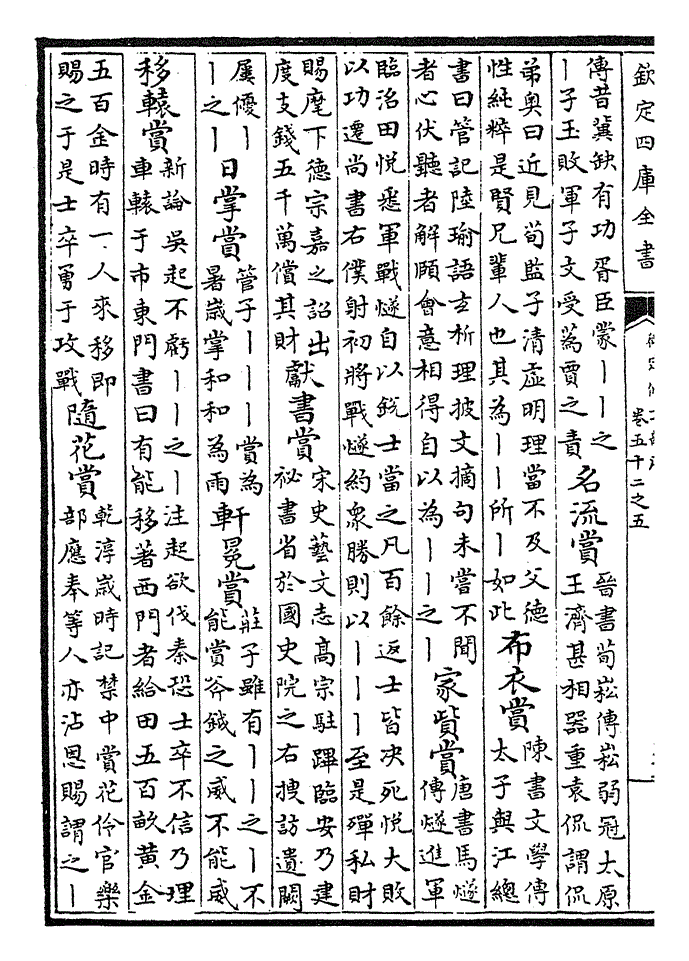 欽定四庫全書
卷五十二之五
傳昔冀缺有功胥臣蒙丨丨之
丨子玉敗軍子文受蒍賈之責
名流賞
晉書荀崧傳崧弱冠太原
王濟甚相器重袁侃謂侃
弟奥曰近見荀監子清虚明理當不及父德
性純粹是賢兄輩人也其為丨丨所丨如此
布衣賞
陳書文學傳
太子與江總
書曰管記陸瑜語玄析理披文摘句未嘗不聞
者心伏聽者解頤會意相得自以為丨丨之丨
家貲賞
唐書馬燧
傳燧進軍
臨洺田悦悉軍戰燧自以銳士當之凡百餘返士皆决死悦大敗
以功遷尚書右僕射初將戰燧約衆勝則以丨丨丨至是殫私財
賜麾下德宗嘉之詔出
度支錢五千萬償其財
獻書賞
宋史藝文志高宗駐蹕臨安乃建
祕書省於國史院之右搜訪遺闕
屢優丨
丨之丨
日掌賞
管子丨丨丨賞為
暑歲掌和和為雨
軒冕賞
莊子雖有丨丨之丨不
能賞斧鉞之威不能威
移轅賞
新論吳起不虧丨丨之丨注起欲伐秦恐士卒不信乃理
車轅于市東門書曰有能移著西門者給田五百畝黄金
五百金時有一人來移即
賜之于是士卒勇于攻戰
隨花賞
乾淳歲時記禁中賞花伶官樂
部應奉等人亦沾恩賜謂之丨